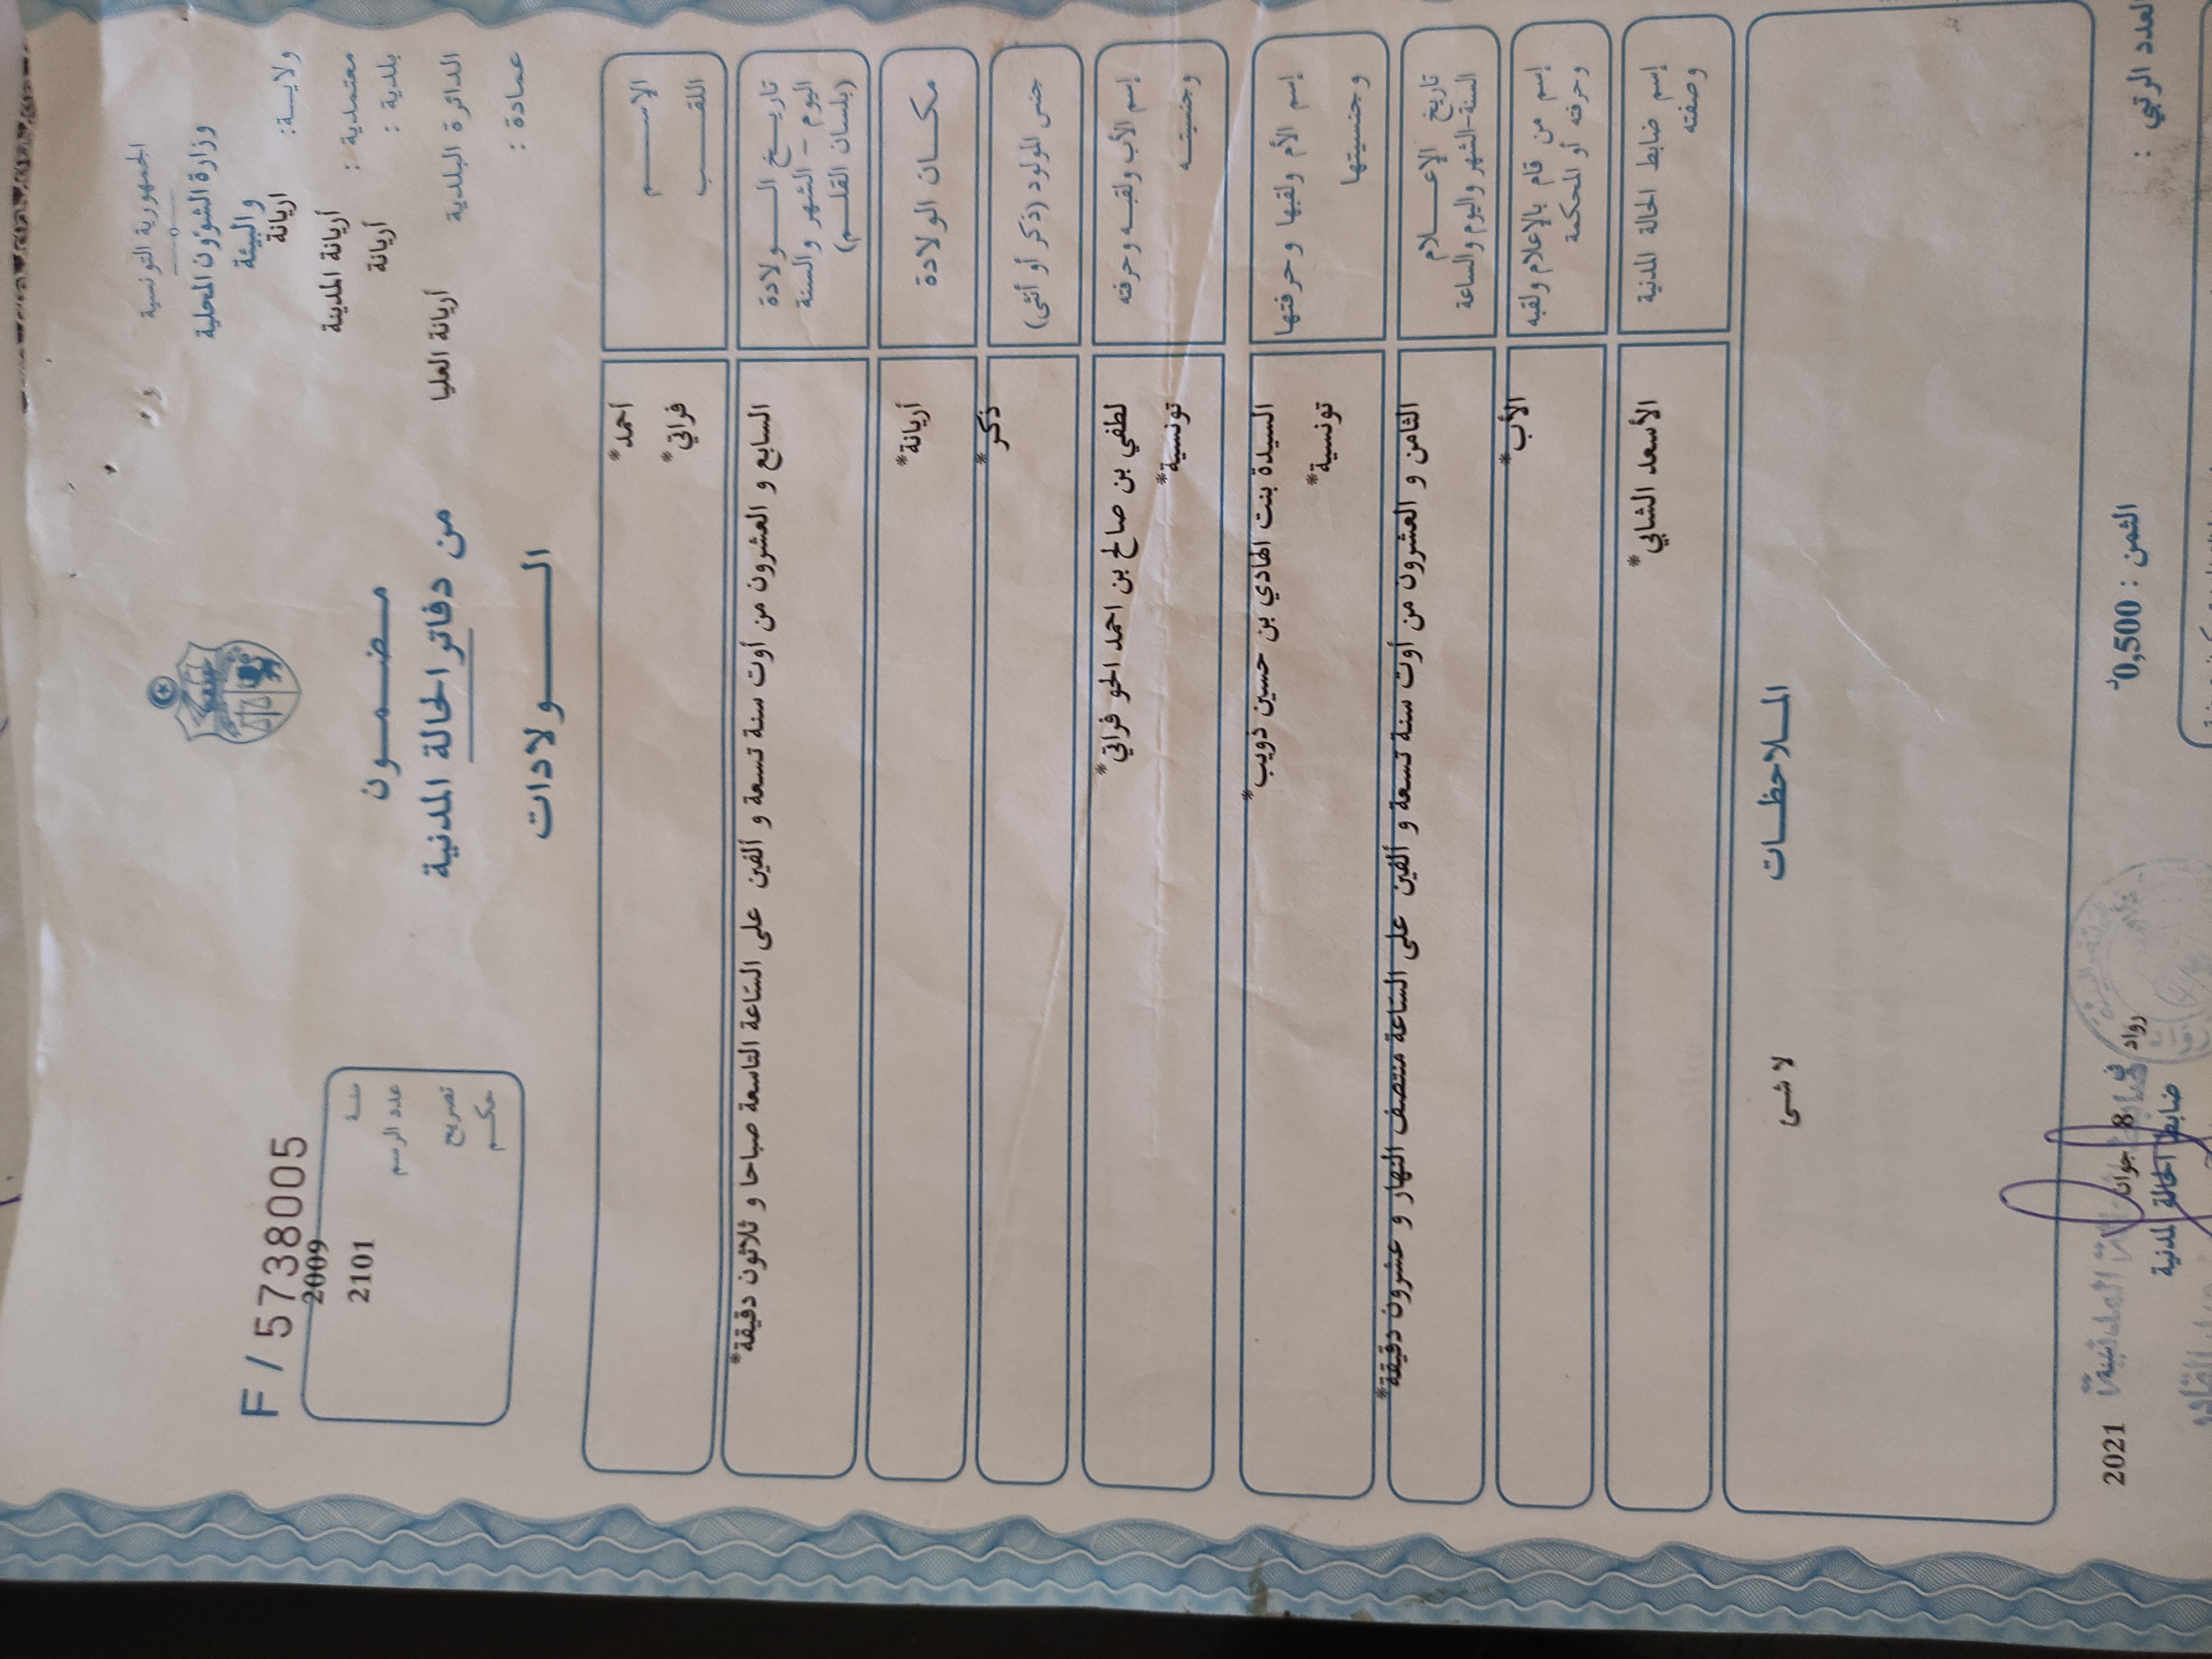 الجمهورية التونسية
وزارة الشؤون المحلية
والبيئة
ولاية: اريانة
معتمدية : أريانة المدينة
بلدية : أريانة
الدائرة البلدية أريانة العليا
عمادة :
مضمون
من دفاتر الحالة المدنية
الولادات
F / 5738005
سنة 2009
عدد الرسم 2101
تصريح
حكم
الإسم أحمد*
اللقب فراتي*
تاريخ الولادة
اليوم - الشهر والسنة
(بلسان القلم)
السابع و العشرون من أوت سنة تسعة و ألفين على الساعة التاسعة صباحا و ثلاثون دقيقة*
مكان الولادة أريانة*
جنس المولود (ذكر أو أنثى) ذكر*
إسم الأب ولقبه وحرفته لطفي بن صالح بن احمد الحو فراتي*
وجنسيته تونسية*
إسم الأم ولقبها وحرفتها السيدة بنت الهادي بن حسين ذويب*
وجنسيتها تونسية*
تاريخ الإعلام
السنة-الشهر واليوم والساعة
الثامن و العشرون من أوت سنة تسعة و ألفين على الساعة منتصف النهار و عشرون دقيقة*
إسم من قام بالإعلام ولقبه
وحرفته أو المحكمة
الأب*
إسم ضابط الحالة المدنية
وصفته
الأسعد الشابي*
الملاحظات
لا شئ
العدد الرتبي :
الثمن : 0,500د
رواد في 8 جوان 2021
ضابط الحالة المدنية